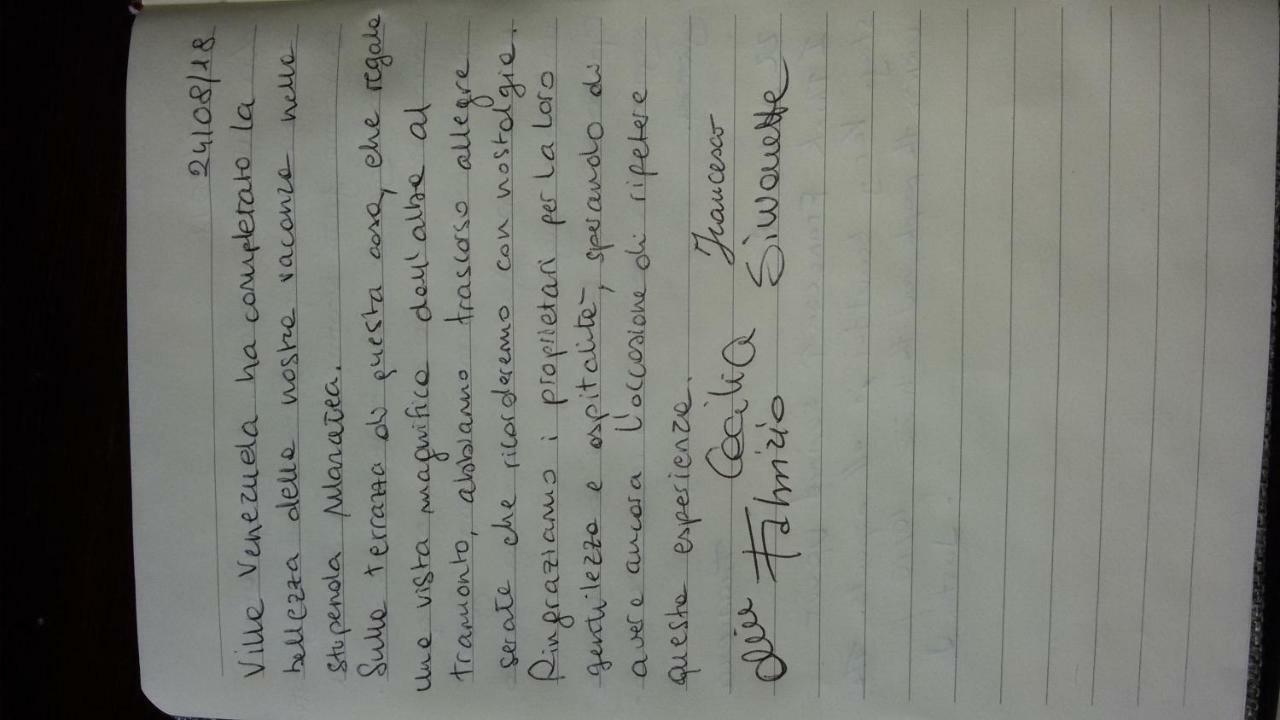 24/08/18
Villa Venezuela ha completato la
bellezza della nostra vacanza nella
stupenda Maratea.
Sulla terrazza di questa casa, che regala
una vista magnifica dall'alba al
tramonto, abbiamo trascorso allegre
serate che ricorderemo con nostalgia.
Ringraziamo i proprietari per la loro
gentilezza e ospitalità, sperando di
avere ancora l'occasione di ripetere
questa esperienza.
Cecilia Francesco
Fabrizio Simonetta